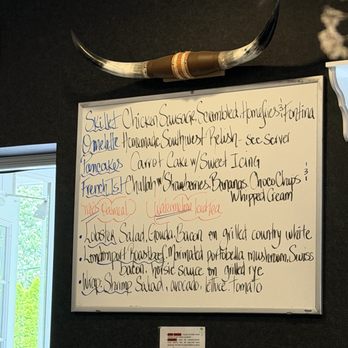 Skillet Chicken Sausage, Scrambled, Homefries & Fontina
Omelette Homemade Southwest Relish - see server
Pancakes Carrot Cake w/ Sweet Icing
French Tst Challah w/ Strawberries, Bananas, Choco Chips &
Whipped Cream
Oatmeal Watermelon Iced tea
• Lobster Salad, Gouda, Bacon on grilled country white
• Londonport Roast Beef, Marinated portobella mushroom, Swiss
bacon, horsie sauce on grilled rye
• Shrimp Salad, avocado, lettuce, tomato